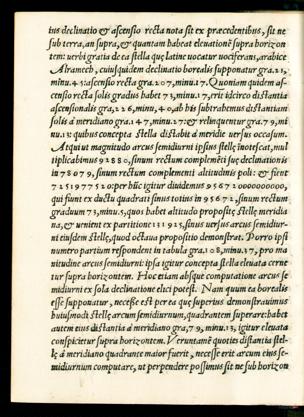 ius declinatio & ascensio recta nota sit ex præcedentibus, sit ne
sub terra, an supra, & quantam habeat eleuationẽ supra horizon
tem: uerbi gratia de ea stella quę latine uocatur uociferans, arabice
Alramech, cuius quidem declinatio borealis supponatur gra. 21,
minu. 45: ascensio recta gra. 207, minu. 17. Quoniam quidem as-
censio recta solis gradus habet 73, minu. 17, erit idcirco distantia
ascensionalis gra, 226, minu, 40, ab his subtrahemus distantiam
solis à meridiano gra. 147, minu. 27: & relinquentur gra. 79, mi
nu. 13: quibus concepta stella distabit à meridie uersus occasum.
Atqui ut magnitudo arcus semidiurni ipsius stellę inotescat, mul
tiplicabimus 92880, sinum rectum complemẽti suę declinationis
in 78079, sinum rectum complementi altitudinis poli: & fient
7251977520: per hũc igitur diuidemus 956720000000000,
qui fiunt ex ductu quadrati sinus totius in 95672, sinum rectum
graduum 73, minu. 5, quos habet altitudo propositę stellę meridia
na, & ueniet ex partitione 131925, sinus uersus arcus semidiur-
ni eiusdem stellę, quod octaua propositio demonstrat. Porro ipsi
numero partium respondent in tabula gra. 108, minu. 37, pro ma
gnitudine arcus semidiurni: ipsa igitur concepta stella eleuata cerne
tur supra horizontem. Hoc etiam absque computatione arcus se
midiurni ex sola declinatione elici potest. Nam quum ea borealis
esse supponatur, necesse est per ea que superius demonstrauimus
huiusmodi stellę arcum semidiurnum, quadrantem superare: habet
autem eius distantia à meridiano gra, 79, minu. 13, igitur eleuata
conspicietur supra horizontem. Veruntamẽ quoties distantia stel-
lę à meridiano quadrante maior fuerit, necesse erit arcum eius se-
midiurnum computare, ut perpendere possimus sit ne sub horizon